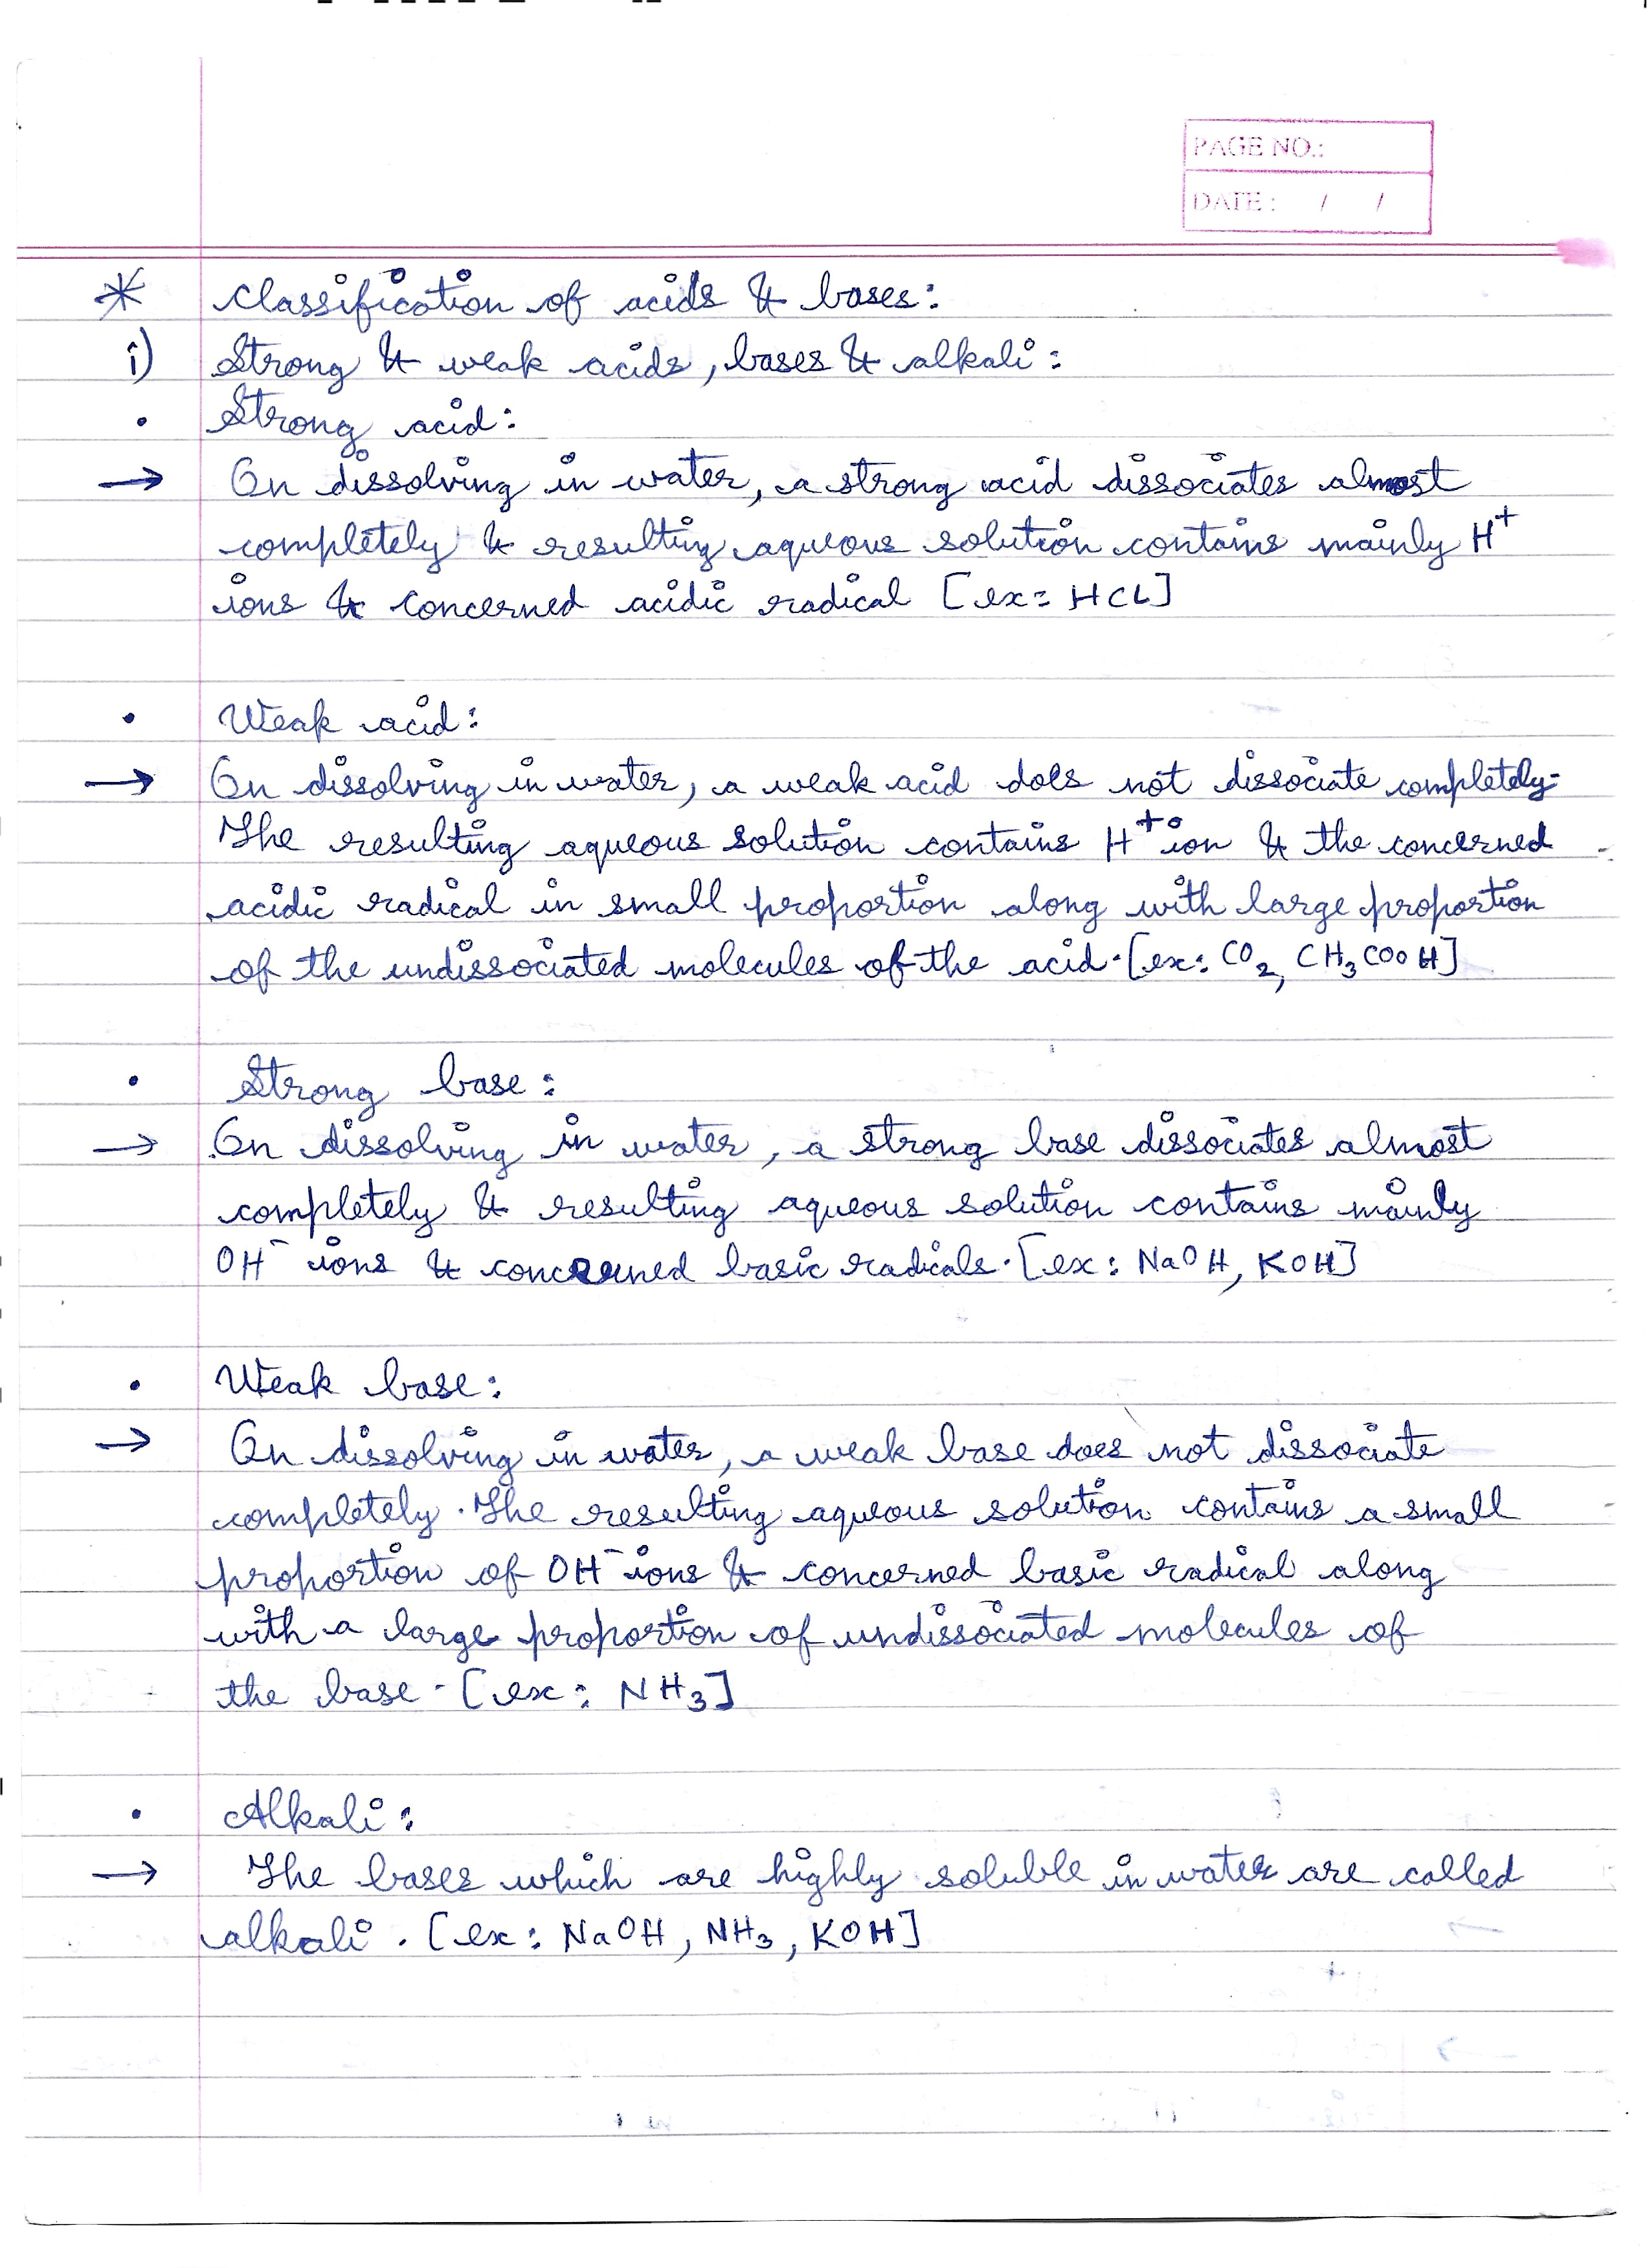 PAGE NO.:
DATE : / /
* Classification of acids & bases:
i) Strong & weak acids, bases & alkali:
• Strong acid:
→ On dissolving in water, a strong acid dissociates almost
completely & resulting aqueous solution contains mainly H⁺
ions & concerned acidic radical [ex: HCl]
• Weak acid:
→ On dissolving in water, a weak acid does not dissociate completely.
The resulting aqueous solution contains H⁺ ion & the concerned
acidic radical in small proportion along with large proportion
of the undissociated molecules of the acid. [ex: CO₂, CH₃COOH]
• Strong base:
→ On dissolving in water, a strong base dissociates almost
completely & resulting aqueous solution contains mainly
OH⁻ ions & concerned basic radicals. [ex: NaOH, KOH]
• Weak base:
→ On dissolving in water, a weak base does not dissociate
completely. The resulting aqueous solution contains a small
proportion of OH⁻ ions & concerned basic radical along
with a large proportion of undissociated molecules of
the base. [ex: NH₃]
• Alkali:
→ The bases which are highly soluble in water are called
alkali. [ex: NaOH, NH₃, KOH]